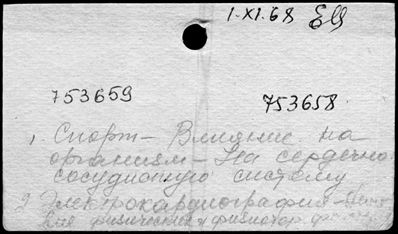 1.XI.68 ЕЩ
753659 753658
1. Спорт - Влияние на
организм - На сердечно-
сосудистую систему
2. Электрокардиография -
физических и